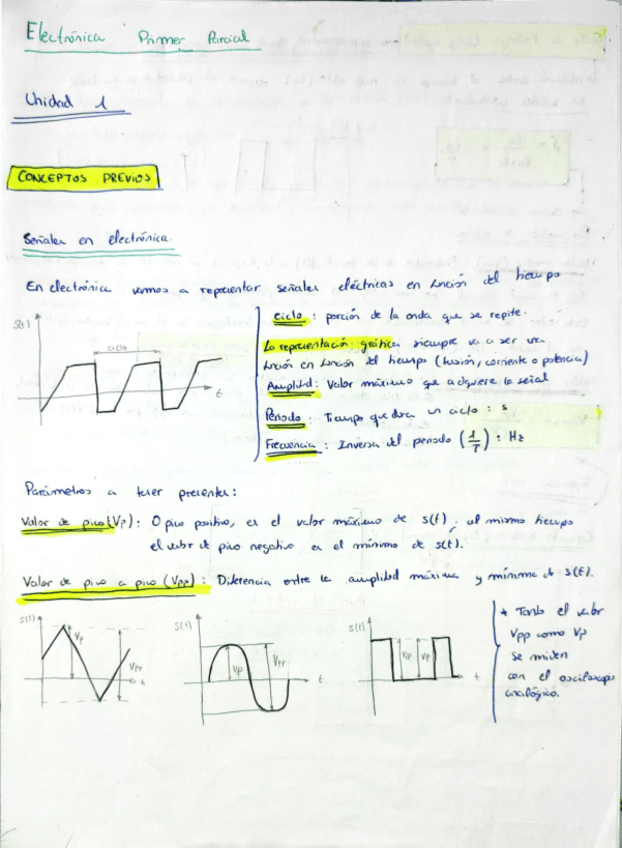 Electrónica Primer Parcial
Unidad 1
CONCEPTOS PREVIOS
Señales en electrónica.
En electrónica vamos a representar señales eléctricas en función del tiempo
S(t)
ciclo
t
Ciclo : porción de la onda que se repite.
La representación gráfica siempre va a ser una
función en función del tiempo (tensión, corriente o potencia)
Amplitud: Valor máximo que adquiere la señal
Periodo : Tiempo que dura un ciclo : s
Frecuencia : Inversa del periodo (1/T) : Hz
Parámetros a tener presentes:
Valor de pico (Vp): O pico positivo, es el valor máximo de s(t), al mismo tiempo
el valor de pico negativo es el mínimo de s(t).
Valor de pico a pico (Vpp) : Diferencia entre la amplitud máxima y mínima de s(t).
S(t)
Vp
Vpp
t
S(t)
Vp
Vpp
t
S(t)
Vp
Vp
t
* Tanto el valor
Vpp como Vp
se miden
con el osciloscopio
analógico.